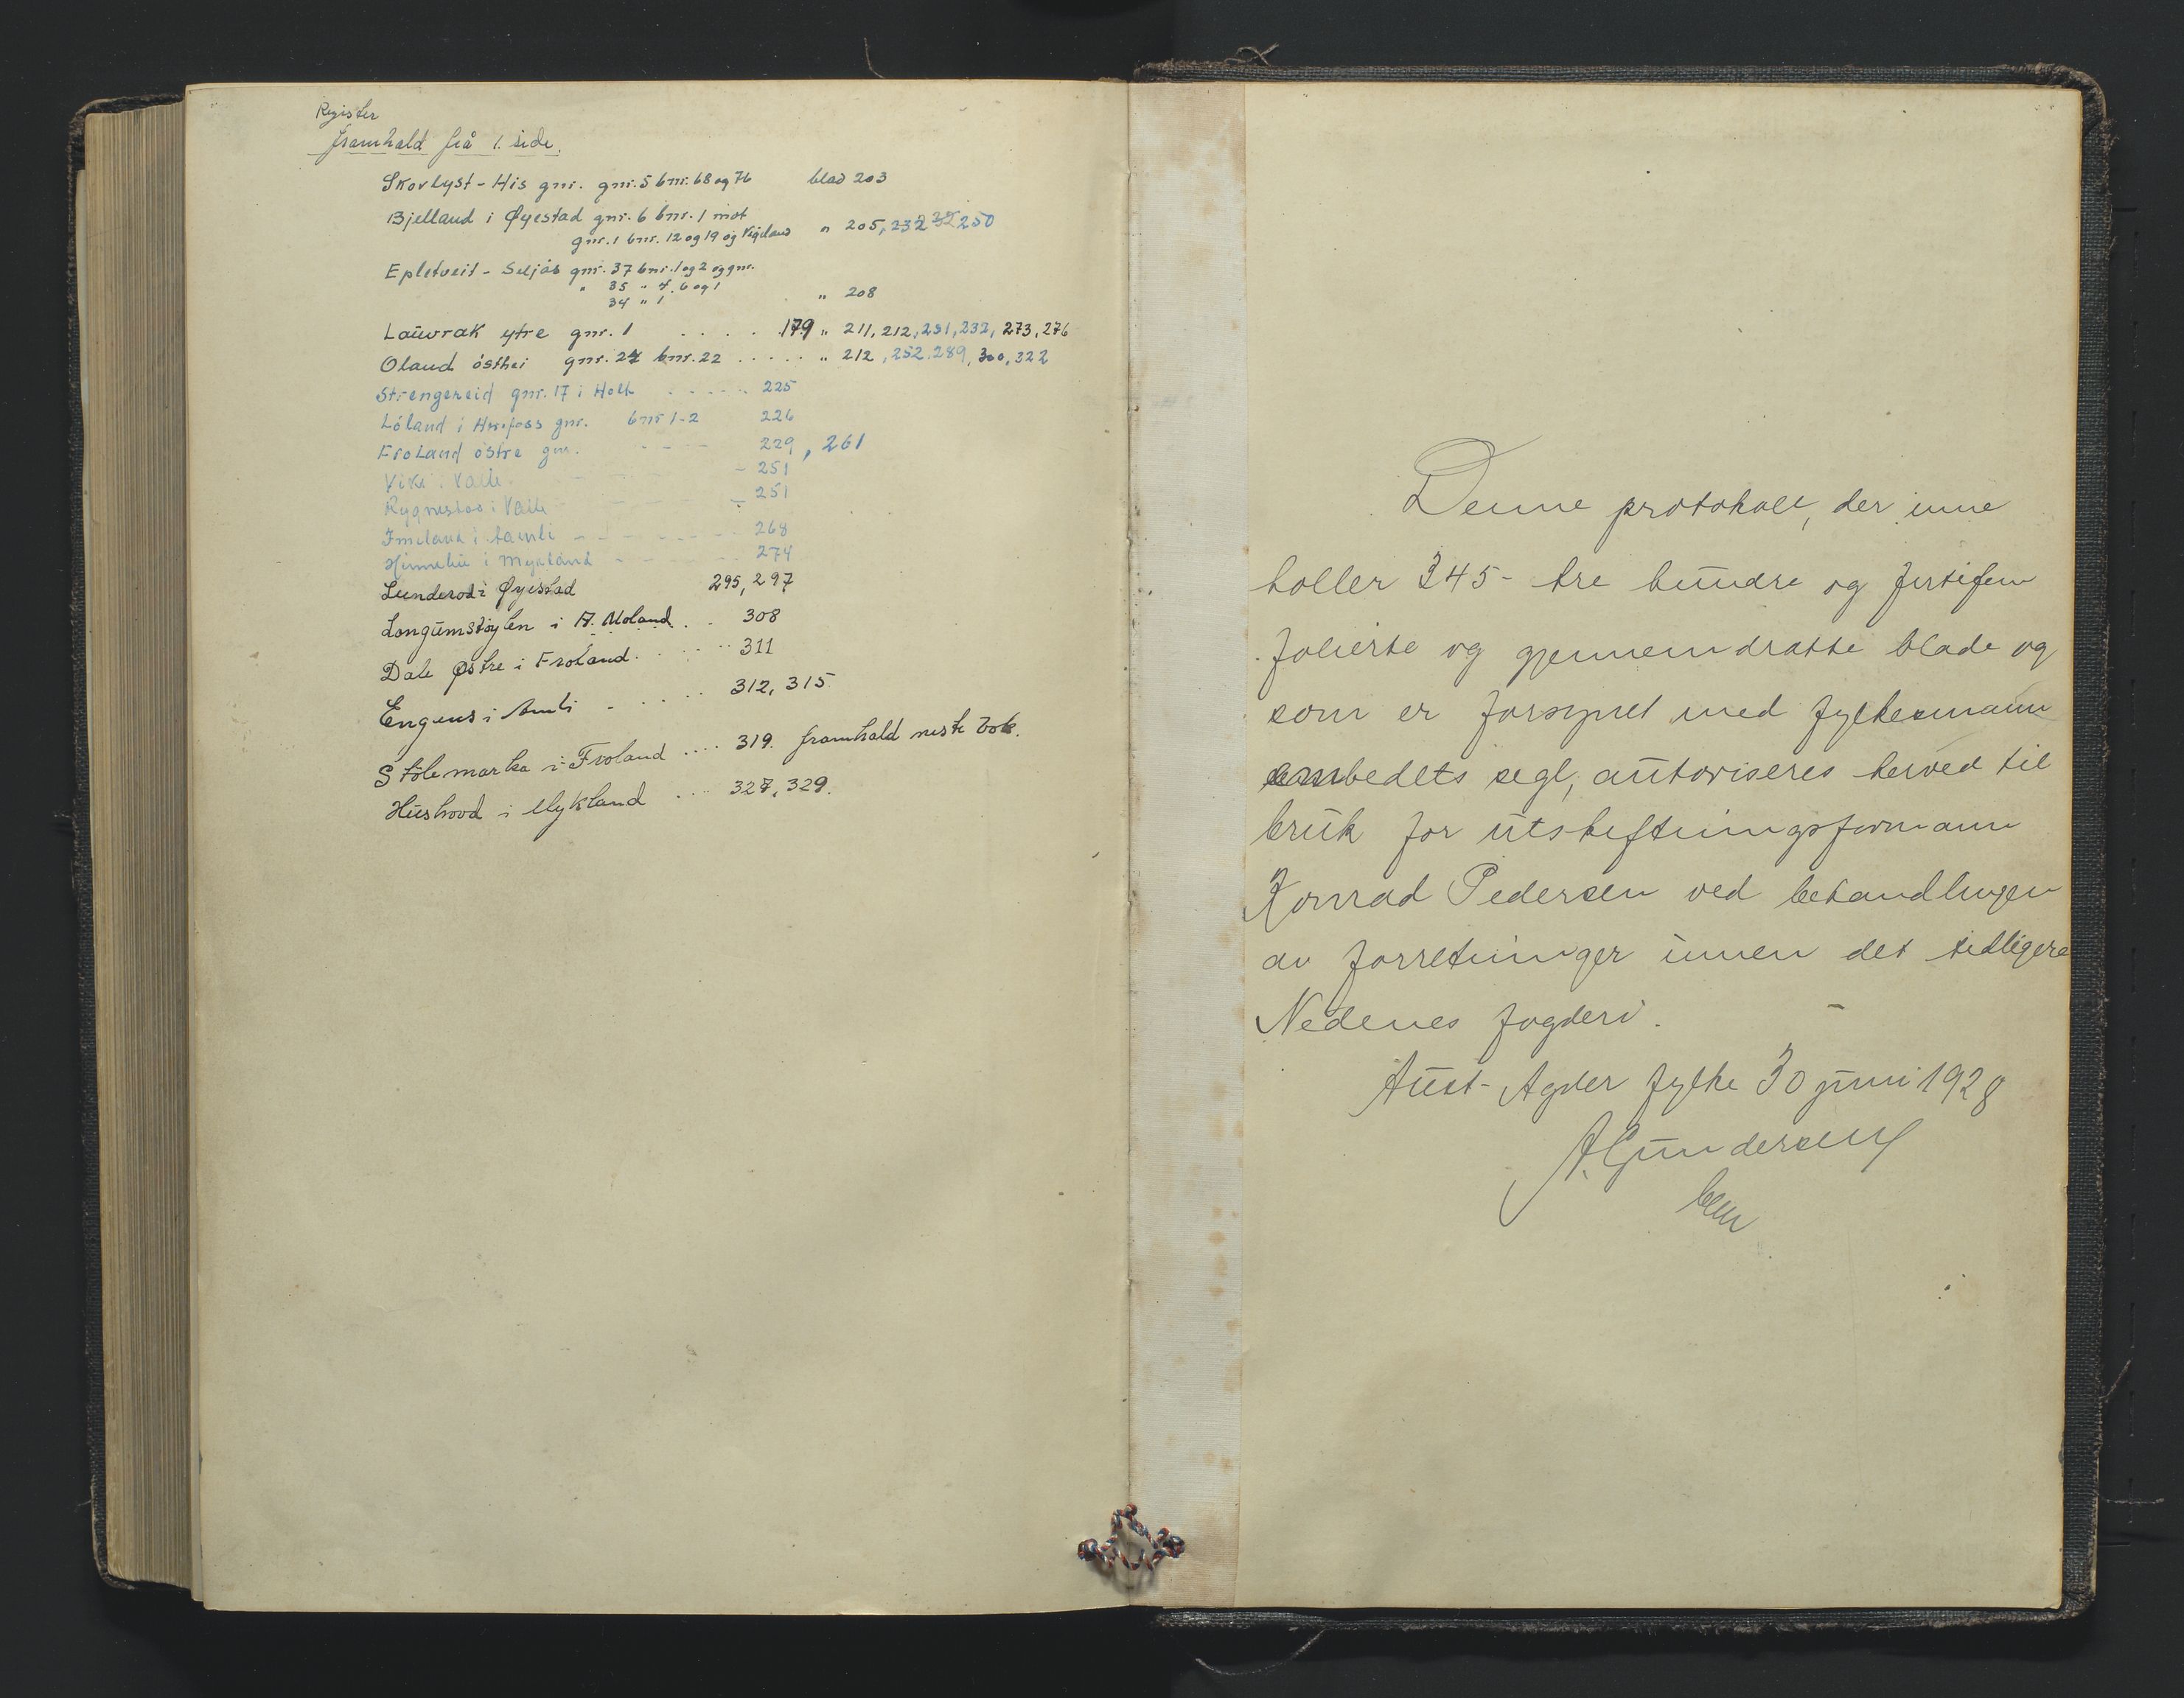 Register
framhald frå 1. side.
Skovlyst - His gnr. gnr. 5 bnr. 68 og 76 blad 203
Bjelland i Øyestad gnr. 6 bnr. 1 mot
gnr. 1 bnr. 12 og 19 og Vigeland " 205, 232 250
Epletveit - Seljås gnr. 37 bnr. 1 og 2 og gnr.
" 35 " 4. 6 og 1
34 " 1 " 208
Lauvrak ytre gnr. 1 . . . . 179 " 211, 212, 231, 232, 273, 276
Oland östhei gnr. 27 bnr. 22 . . . . . " 212, 252. 289, 300, 322
Strengereid gnr. 17 i Holt . . . . . 225
Löland i Herefoss gnr. bnr 1-2 226
Froland östre gnr. - - - 229, 261
Viki i Valle - 251
Rygnestad i Valle - - - 251
Imeland i Aamli - - - - 268
Himelie i Mykland - - - 274
Lunderöd i Øyestad 295, 297
Longumstøylen i A. Moland . . 308
Dale Østre i Froland . . . . . 311
Engenes i Amli . . . . . 312, 315
Stölemarka i Froland .... 319. framhald neste bok.
Hushovd i Mykland .... 327, 329.
Denne protokoll, der inne
holler 345 - tre hundre og førtifem
folierte og gjennemdratte blade og
som er forsynet med fylkesmann
embedets segl, autoriseres herved til
bruk for utskiftningsformann
Konrad Pedersen ved behandlingen
av forretninger innen det tidligere
Nedenes fogderi.
Aust-Agder fylke 30 juni 1928
A Gundersen